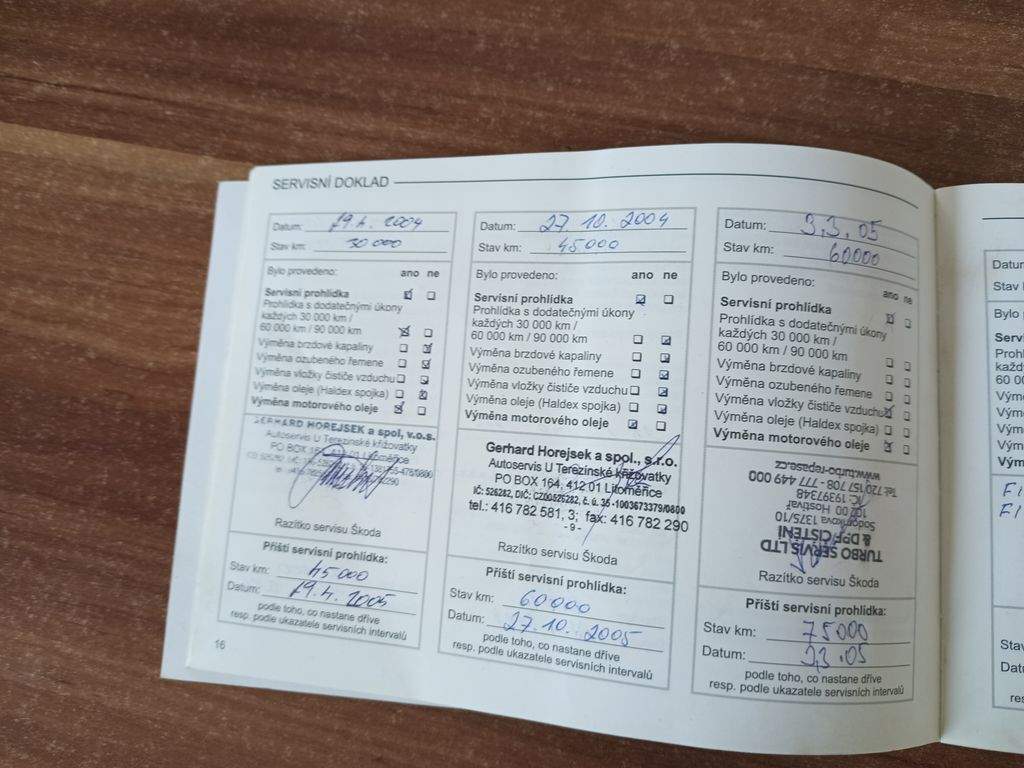 SERVISNÍ DOKLAD
Datum: 19.4. 2004
Stav km: 30 000
Bylo provedeno: ano ne
Servisní prohlídka
Prohlídka s dodatečnými úkony
každých 30 000 km /
60 000 km / 90 000 km
Výměna brzdové kapaliny
Výměna ozubeného řemene
Výměna vložky čističe vzduchu
Výměna oleje (Haldex spojka)
Výměna motorového oleje
GERHARD HOREJSEK a spol, v.o.s.
Autoservis U Terezínské křižovatky
PO BOX 164, 412 01 Litoměřice
Razítko servisu Škoda
Příští servisní prohlídka:
Stav km: 45 000
Datum: 19.4. 2005
podle toho, co nastane dříve
resp. podle ukazatele servisních intervalů
16
Datum: 27. 10. 2004
Stav km: 45000
Bylo provedeno: ano ne
Servisní prohlídka
Prohlídka s dodatečnými úkony
každých 30 000 km /
60 000 km / 90 000 km
Výměna brzdové kapaliny
Výměna ozubeného řemene
Výměna vložky čističe vzduchu
Výměna oleje (Haldex spojka)
Výměna motorového oleje
Gerhard Horejsek a spol., s.r.o.
Autoservis U Terezínské křižovatky
PO BOX 164, 412 01 Litoměřice
IČ: 526282, DIČ: CZ00526282, č. ú. 35 -1003673379/0800
tel.: 416 782 581, 3; fax: 416 782 290
- 9 -
Razítko servisu Škoda
Příští servisní prohlídka:
Stav km: 60000
Datum: 27.10. 2005
podle toho, co nastane dříve
resp. podle ukazatele servisních intervalů
Datum: 3,3, 05
Stav km: 60000
Bylo provedeno: ano ne
Servisní prohlídka
Prohlídka s dodatečnými úkony
každých 30 000 km /
60 000 km / 90 000 km
Výměna brzdové kapaliny
Výměna ozubeného řemene
Výměna vložky čističe vzduchu
Výměna oleje (Haldex spojka)
Výměna motorového oleje
TURBO SERVIS LTD
& DPF ČISTĚNÍ
Sodomkova 1375/10
102 00 Hostivař
IČ: 13197348
Tel: 720 157 708 - 777 449 000
www.turbo-repase.cz
Razítko servisu Škoda
Příští servisní prohlídka:
Stav km: 75000
Datum: 3,3 .05
podle toho, co nastane dříve
resp. podle ukazatele servisních intervalů